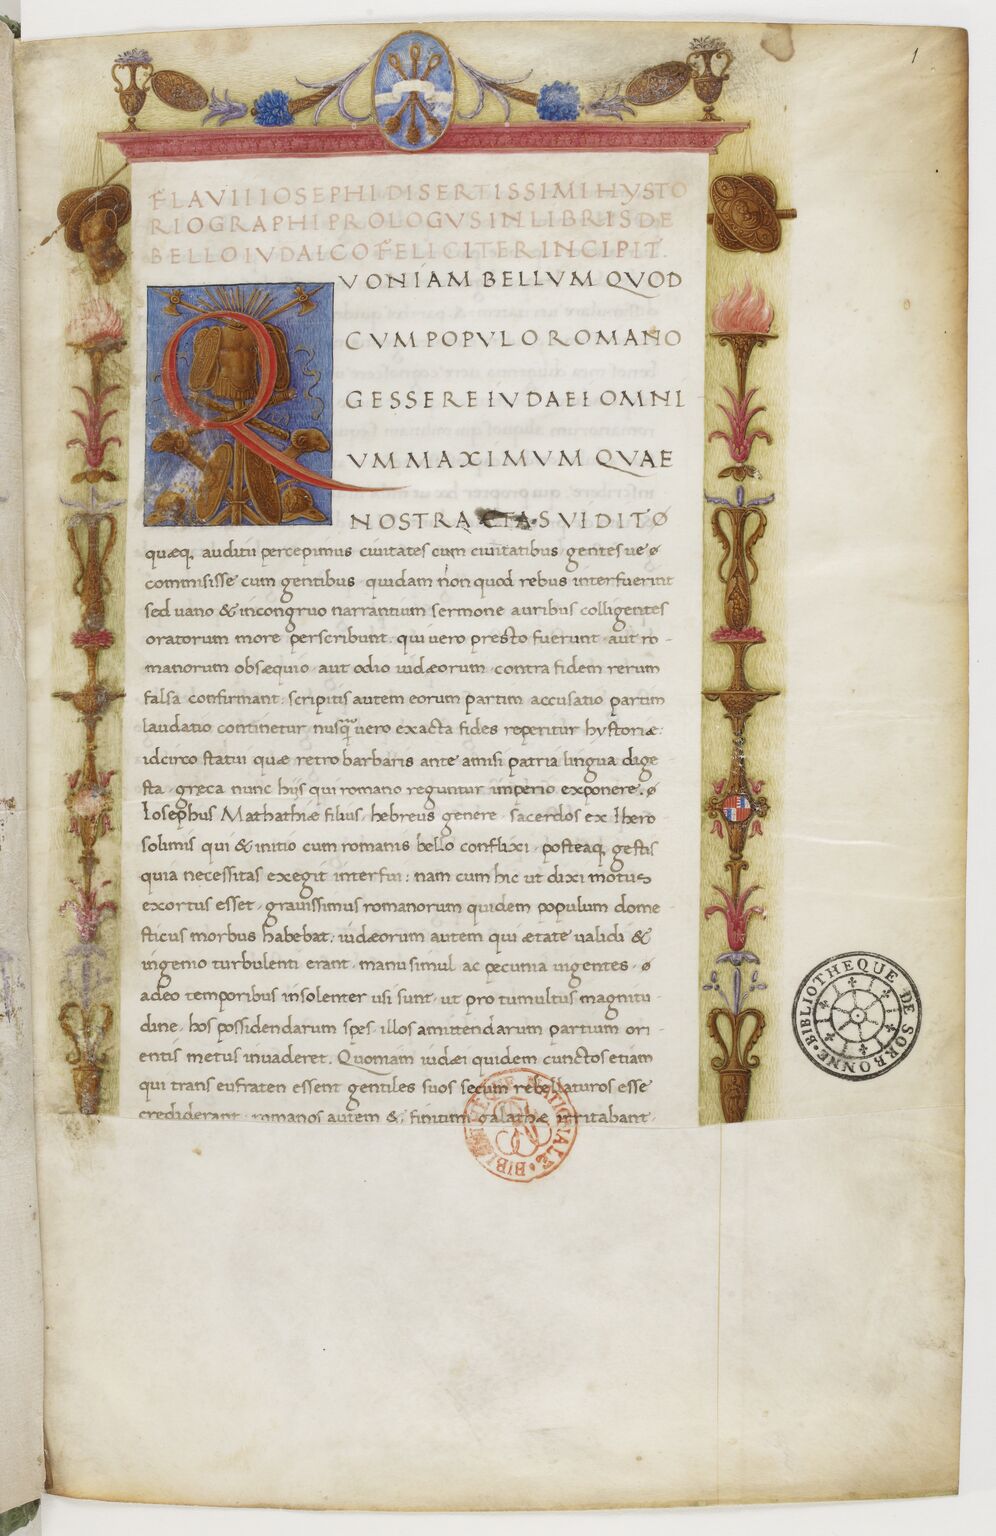 1
FLAVII IOSEPHI DISERTISSIMI HYSTO
RIOGRAPHI PROLOGVS IN LIBRIS DE
BELLO IVDAICO FELICITER INCIPIT.
QVONIAM BELLVM QVOD
CVM POPVLO ROMANO
GESSERE IVDAEI OMNI
VM MAXIMVM QVAE
NOSTRA ETAS VIDIT ø
quæq. auditu percepimus civitates cum civitatibus gentes ve ø
commisisse cum gentibus · quidam non quod rebus interfuerint
sed vano & incongruo narrantium sermone auribus colligentes
oratorum more perscribunt. qui vero presto fuerunt · aut ro -
manorum obsæquio · aut odio iudæorum · contra fidem rerum
falsa confirmant: scriptis autem eorum partim accusatio partim
laudatio continetur nusquã vero exacta fides reperitur hystoriæ:
idcirco statui quæ retro barbaris ante amisi patria lingua dige
sta · gręca nunc hijs qui romano reguntur imperio exponere. ø
Iosephus Mathathiæ filius · hebreus genere · sacerdos ex Ihero
solimis qui & initio cum romanis bello conflixi · posteaq. gestis
quia necessitas exegit interfui: nam cum hic ut dixi motus
exortus esset · gravissimus romanorum quidem populum dome
sticus morbus habebat. iudæorum autem qui ætate validi &
ingenio turbulenti erant · manu simul ac pecunia vigentes · ø
adeo temporibus insolenter usi sunt · ut pro tumultus magnitu -
dine · hos possidendarum spes · illos amittendarum partium ori -
entis metus invaderet. Quoniam iudæi quidem cunctos etiam
qui trans eufraten essent gentiles suos secum rebellaturos esse
crediderant · romanos autem & finitimi galathæ irritabant ·
BIBLIOTHEQUE DE SORBONNE
BIBLIOTHEQUE NATIONALE